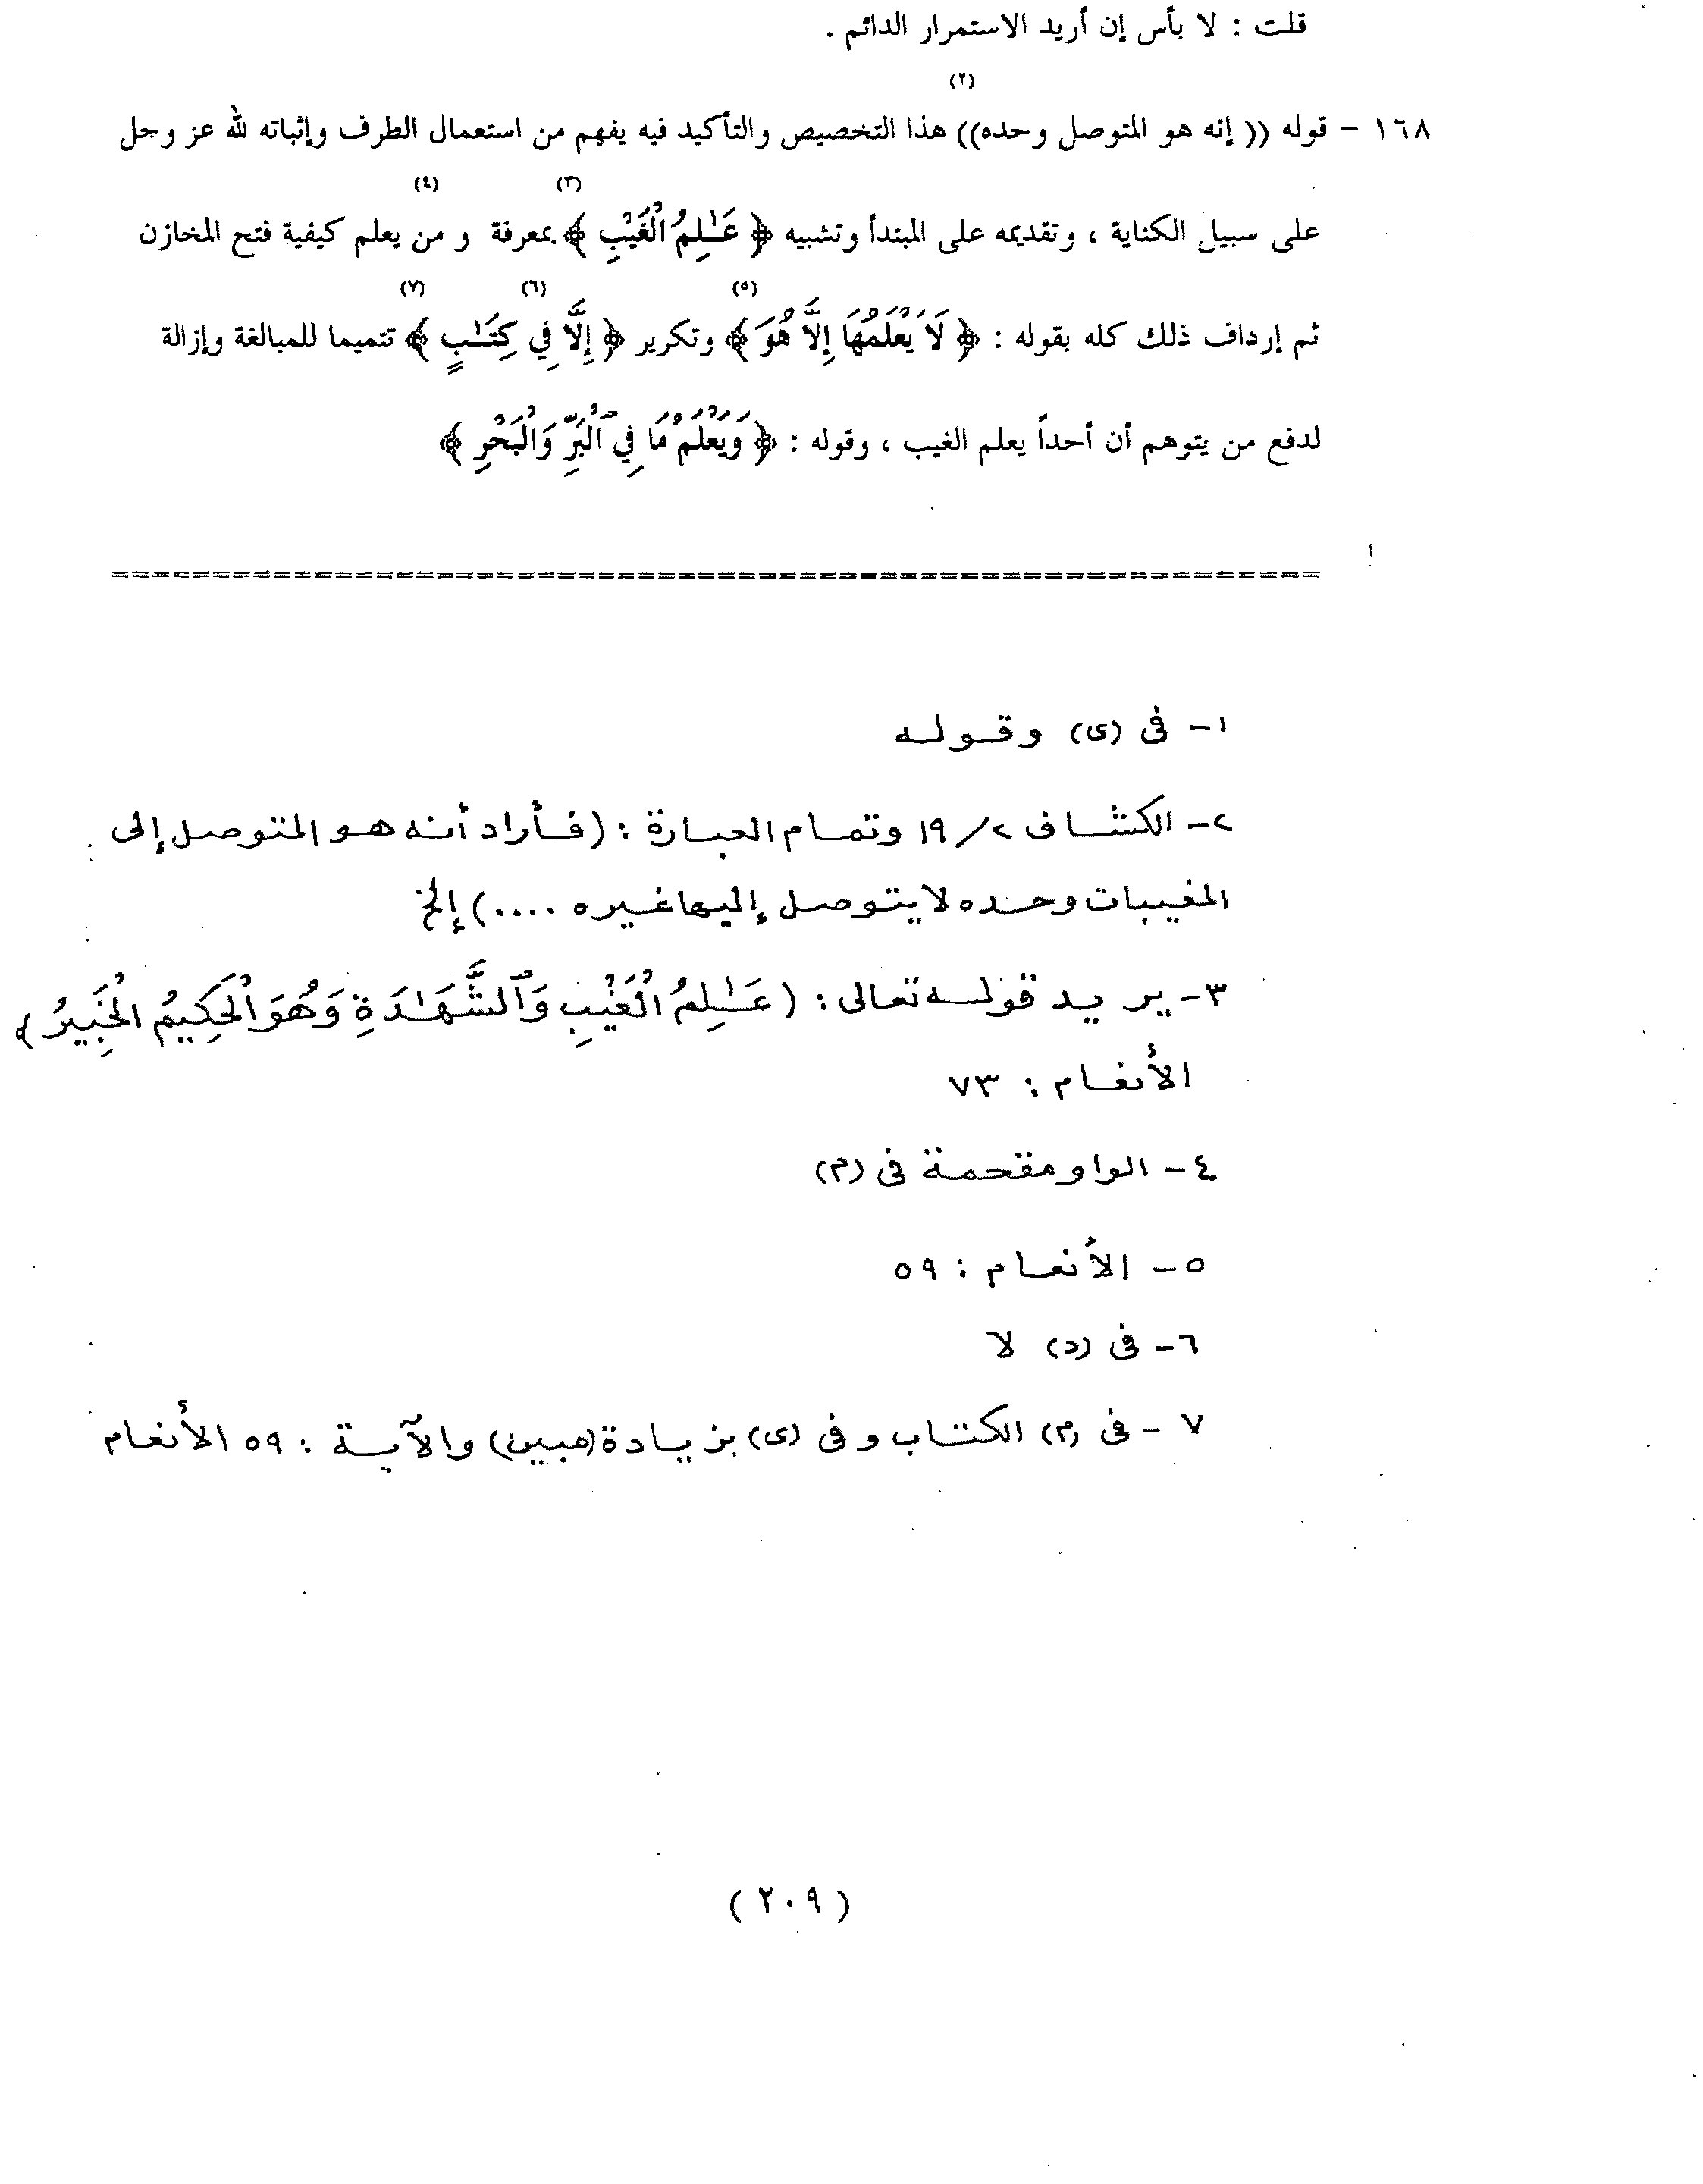 قلت : لا بأس إن أريد الاستمرار الدائم .
(٢)
١٦٨ - قوله (( إنه هو المتوصل وحده)) هذا التخصيص والتأكيد فيه يفهم من استعمال الطرف وإثباته لله عز وجل
(٣) (٤)
على سبيل الكناية ، وتقديمه على المبتدأ وتشبيه ﴿ عَـٰلِمُ الْغَيْبِ ﴾ بمعرفة و من يعلم كيفية فتح المخازن
(٥) (٦) (٧)
ثم إرداف ذلك كله بقوله : ﴿ لَا يَعْلَمُهَا إِلَّا هُوَ ﴾ وتكرير ﴿ إِلَّا فِي كِتَـٰبٍ ﴾ تتميما للمبالغة وإزالة
لدفع من يتوهم أن أحداً يعلم الغيب ، وقوله : ﴿ وَيَعْلَمُ مَا فِي ٱلْبَرِّ وَالْبَحْرِ ﴾
١- فى (ى) وقوله
٢- الكشاف ٢/ ١٩ وتمام العبارة : (فأراد أنه هو المتوصل إلى
المغيبات وحده لا يتوصل إليها غيره ....) إلخ
٣- يريد قوله تعالى : ( عَـٰلِمُ الْغَيْبِ وَٱلشَّهَـٰدَةِ وَهُوَ الْحَكِيمُ الْخَبِيرُ )
الأنعام : ٧٣
٤- الواو مقحمة فى (م)
٥- الأنعام : ٥٩
٦- فى (د) لا
٧- فى (م) الكتاب وفى (ى) بزيادة (مبين) والآية : ٥٩ الأنعام
( ٢٠٩ )